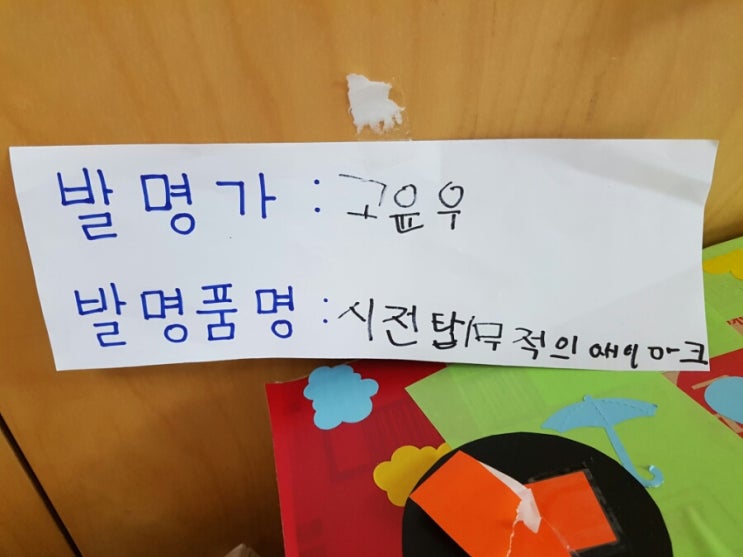 발명가 : 고윤우
발명품명 : 시전탑/무적의 에이마크